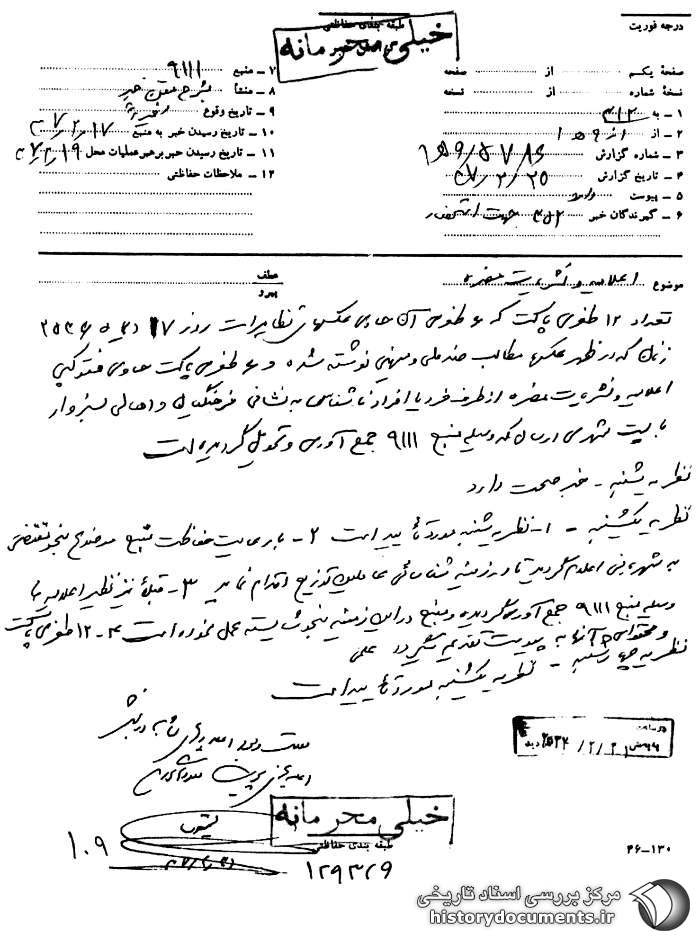 درجه فوریت
طبقه بندی حفاظتی
خیلی محرمانه
صفحهٔ یکم از صفحه
نسخهٔ شماره از نسخه
۱ – به ۳۱۲
۲ – از ۹ ه ۱
۳ – شماره گزارش
۴ – تاریخ گزارش ۳۷/۲/۲۵
۵ – پیوست دارد
۶ – گیرندگان خبر
۷ – منبع ۹۱۱۱
۸ – منشأ
۹ – تاریخ وقوع
۱۰ – تاریخ رسیدن خبر به منبع ۳۷/۲/۱۷
۱۱ – تاریخ رسیدن خبر برهبر عملیات محل ۳۷/۲/۱۹
۱۲ – ملاحظات حفاظتی
موضوع اعلامیه و نشریات مضره
عطف
پیرو
تعداد ۱۲ طغری پاکت که ۶ طغری آن حاوی عکسهای تظاهرات روز ۱۷ دیماه ۲۵۳۶
زنان که در ظهر عکسها مطالب ضد ملی و میهنی نوشته شده و ۶ طغری پاکت حاوی فتوکپی
اعلامیه و نشریات مضره از طرف فرد یا افراد ناشناسی به نشانی فرهنگیان و اهالی سبزوار
با پست شهری ارسال که وسیله منبع ۹۱۱۱ جمع آوری و تحویل گردیده است
نظریه شنبه – خبر صحت دارد
نظریه یکشنبه – ۱- نظریه شنبه مورد تأیید است ۲- با رعایت حفاظت منبع موضوع بنحو مقتضی
به شهربانی اعلام گردید تا در زمینه شناسائی عاملین توزیع اقدام نمایند ۳- قبلاً نیز نظیر اعلامیه ها
وسیله منبع ۹۱۱۱ جمع آوری گردیده و منبع در این زمینه بنحو شایسته عمل نموده است ۴- ۱۲ طغری پاکت
و محتوای آنها به پیوست تقدیم میگردد
نظریه چهارشنبه – نظریه یکشنبه مورد تأیید است
خیلی محرمانه
طبقه بندی حفاظتی
۱۰۹
۱۲۹۳۲۹
۴۶–۱۳۰
مرکز بررسی اسناد تاریخی
historydocuments.ir